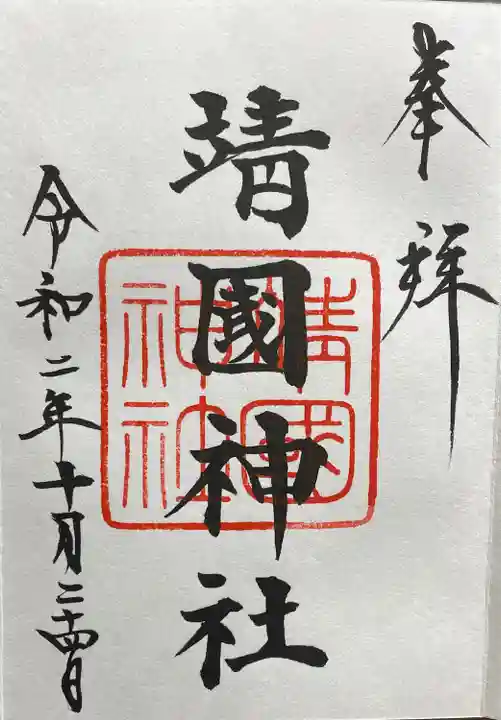 奉拝
靖國神社
靖國神社
令和二年十月二十四日